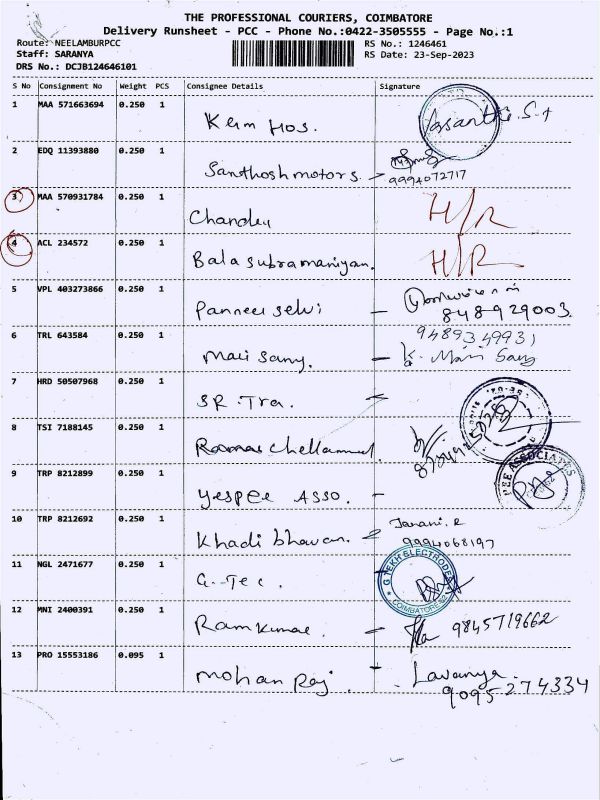 THE PROFESSIONAL COURIERS, COIMBATORE
Delivery Runsheet - PCC - Phone No.:0422-3505555 - Page No.:1
Route: NEELAMBURPCC RS No.: 1246461
Staff: SARANYA RS Date: 23-Sep-2023
DRS No.: DCJB124646101
S No Consignment No Weight PCS Consignee Details Signature
1 MAA 571663694 0.250 1 Kem Hos. Vasantha. S. +
2 EDQ 11393880 0.250 1 Santhosh motors. - 9994072717
3 MAA 570931784 0.250 1 Chander H/R
4 ACL 234572 0.250 1 Bala subramaniyan. H/R
5 VPL 403273866 0.250 1 Panneer selvi - 848929003
6 TRL 643584 0.250 1 Mari Samy. - 9489349931
K. Mari Samy
7 HRD 50507968 0.250 1 SR. Tra.
8 TSI 7188145 0.250 1 Chellammal
9 TRP 8212899 0.250 1 Yespee ASSO. - PEE ASSOCIATES
10 TRP 8212692 0.250 1 Khadi bhavan. - Janani. R
9994068197
11 NGL 2471677 0.250 1 G. Tec. G TEKH ELECTRODE COIMBATORE
12 MNI 2400391 0.250 1 Ramkumar. - 9845719662
13 PRO 15553186 0.095 1 Mohan Raj. - Lavanya.
9095274334